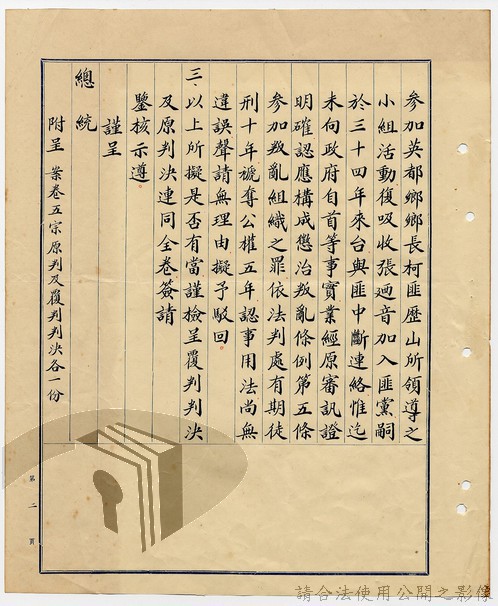 參加英都鄉鄉長柯匪歷山所領導之
小組活動復吸收張廼音加入匪黨嗣
於三十四年來台與匪中斷連絡惟迄
未向政府自首等事實業經原審訊證
明確認應構成懲治叛亂條例第五條
參加叛亂組織之罪依法判處有期徒
刑十年褫奪公權五年認事用法尚無
違誤聲請無理由擬予駁回
三、以上所擬是否有當謹檢呈覆判判決
及原判決連同全卷簽請
鑒核示遵
謹呈
總統
附呈 案卷五宗原判及覆判判決各一份
第二頁
請合法使用公開之影像